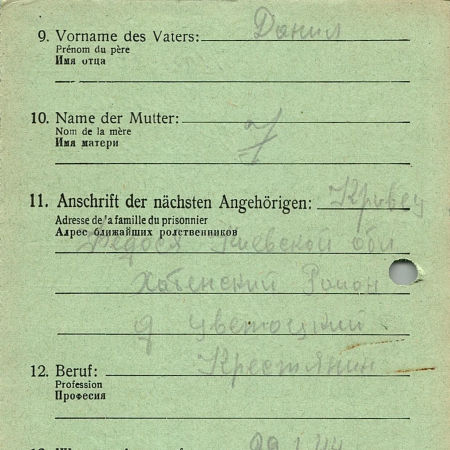 9. Vorname des Vaters: Данил
Prénom du père
Имя отца
10. Name der Mutter:
Nom de la mère
Имя матери
11. Anschrift der nächsten Angehörigen: Кривец
Adresse de la famille du prisonnier
Адрес ближайших родственников
Федося Киевской обл
Хабенский Район
д
12. Beruf: Крестянин
Profession
Професия